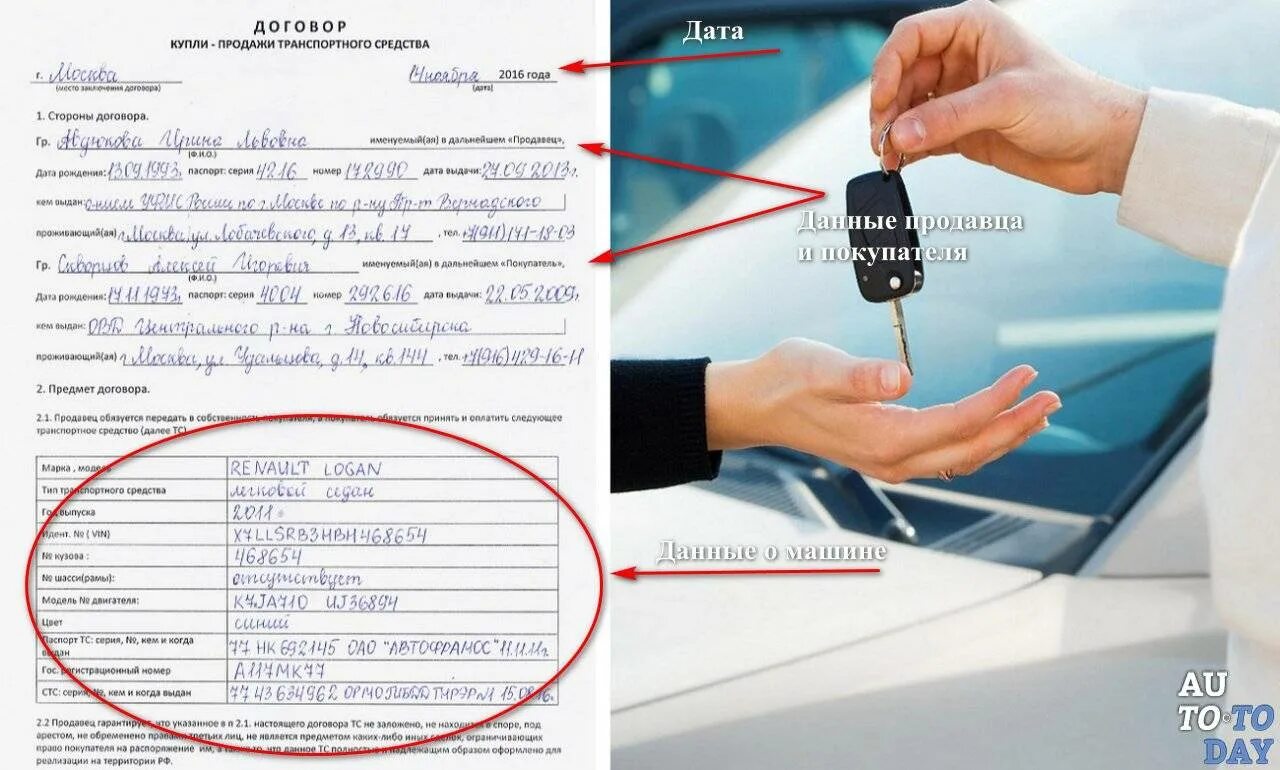 ДОГОВОР
КУПЛИ - ПРОДАЖИ ТРАНСПОРТНОГО СРЕДСТВА
г. Москва 14 ноября 2016 года
(место заключения договора) (дата)
1. Стороны договора.
Гр. Авдюкова Ирина Лововна именуемый(ая) в дальнейшем «Продавец»,
(Ф.И.О.)
Дата рождения: 13.09.1993. паспорт: серия 4216 номер 172990 дата выдачи: 27.09.2013г.
кем выдан: УФМС России по г. Москве по р-ну Пр-т Вернадского
проживающий(ая) г. Москва, ул. Лобачевского, д 13, кв. 17, тел.
Гр. Скворцов Алексей Игоревич именуемый(ая) в дальнейшем «Покупатель»,
(Ф.И.О.)
Дата рождения: 17.11.1973. паспорт: серия 4004 номер 292616 дата выдачи: 22.05.2009.
кем выдан: ОВД Центрального р-на г Новосибирска
проживающий(ая) г Москва, ул Удальцова, д 14, кв. 144, тел. +7(916)429-16-11
2. Предмет договора.
2.1. Продавец обязуется передать в собственность покупателя, а покупатель обязуется принять и оплатить следующее
транспортное средство (далее ТС)
Марка , модель RENAULT LOGAN
Тип транспортного средства легковой седан
Год выпуска 2011
Идент. № ( VIN) X7LLSRB3HBH468654
№ кузова : 468654
№ шасси(рамы): отсутствует
Модель № двигателя: K7JA710 UJ36894
Цвет синий
Паспорт ТС: серия, №, кем и когда
выдан 77 НК 692145 ОАО "АВТОФРАМОС" 11.11.11г.
Гос. регистрационный номер А117МК77
СТС: серия, №, кем и когда выдан 77 43 634962 15.08.16г.
2.2 Продавец гарантирует, что указанное в п 2.1. настоящего договора ТС не заложено, не находится в споре, под
арестом, не обременено правами третьих лиц, не является предметом каких-либо иных сделок, ограничивающих
право покупателя на распоряжение им, а также то, что данное ТС полностью и надлежащим образом оформлено для
реализации на территории РФ.
Дата
Данные продавца
и покупателя
Данные о машине
AU
TO TO
DAY